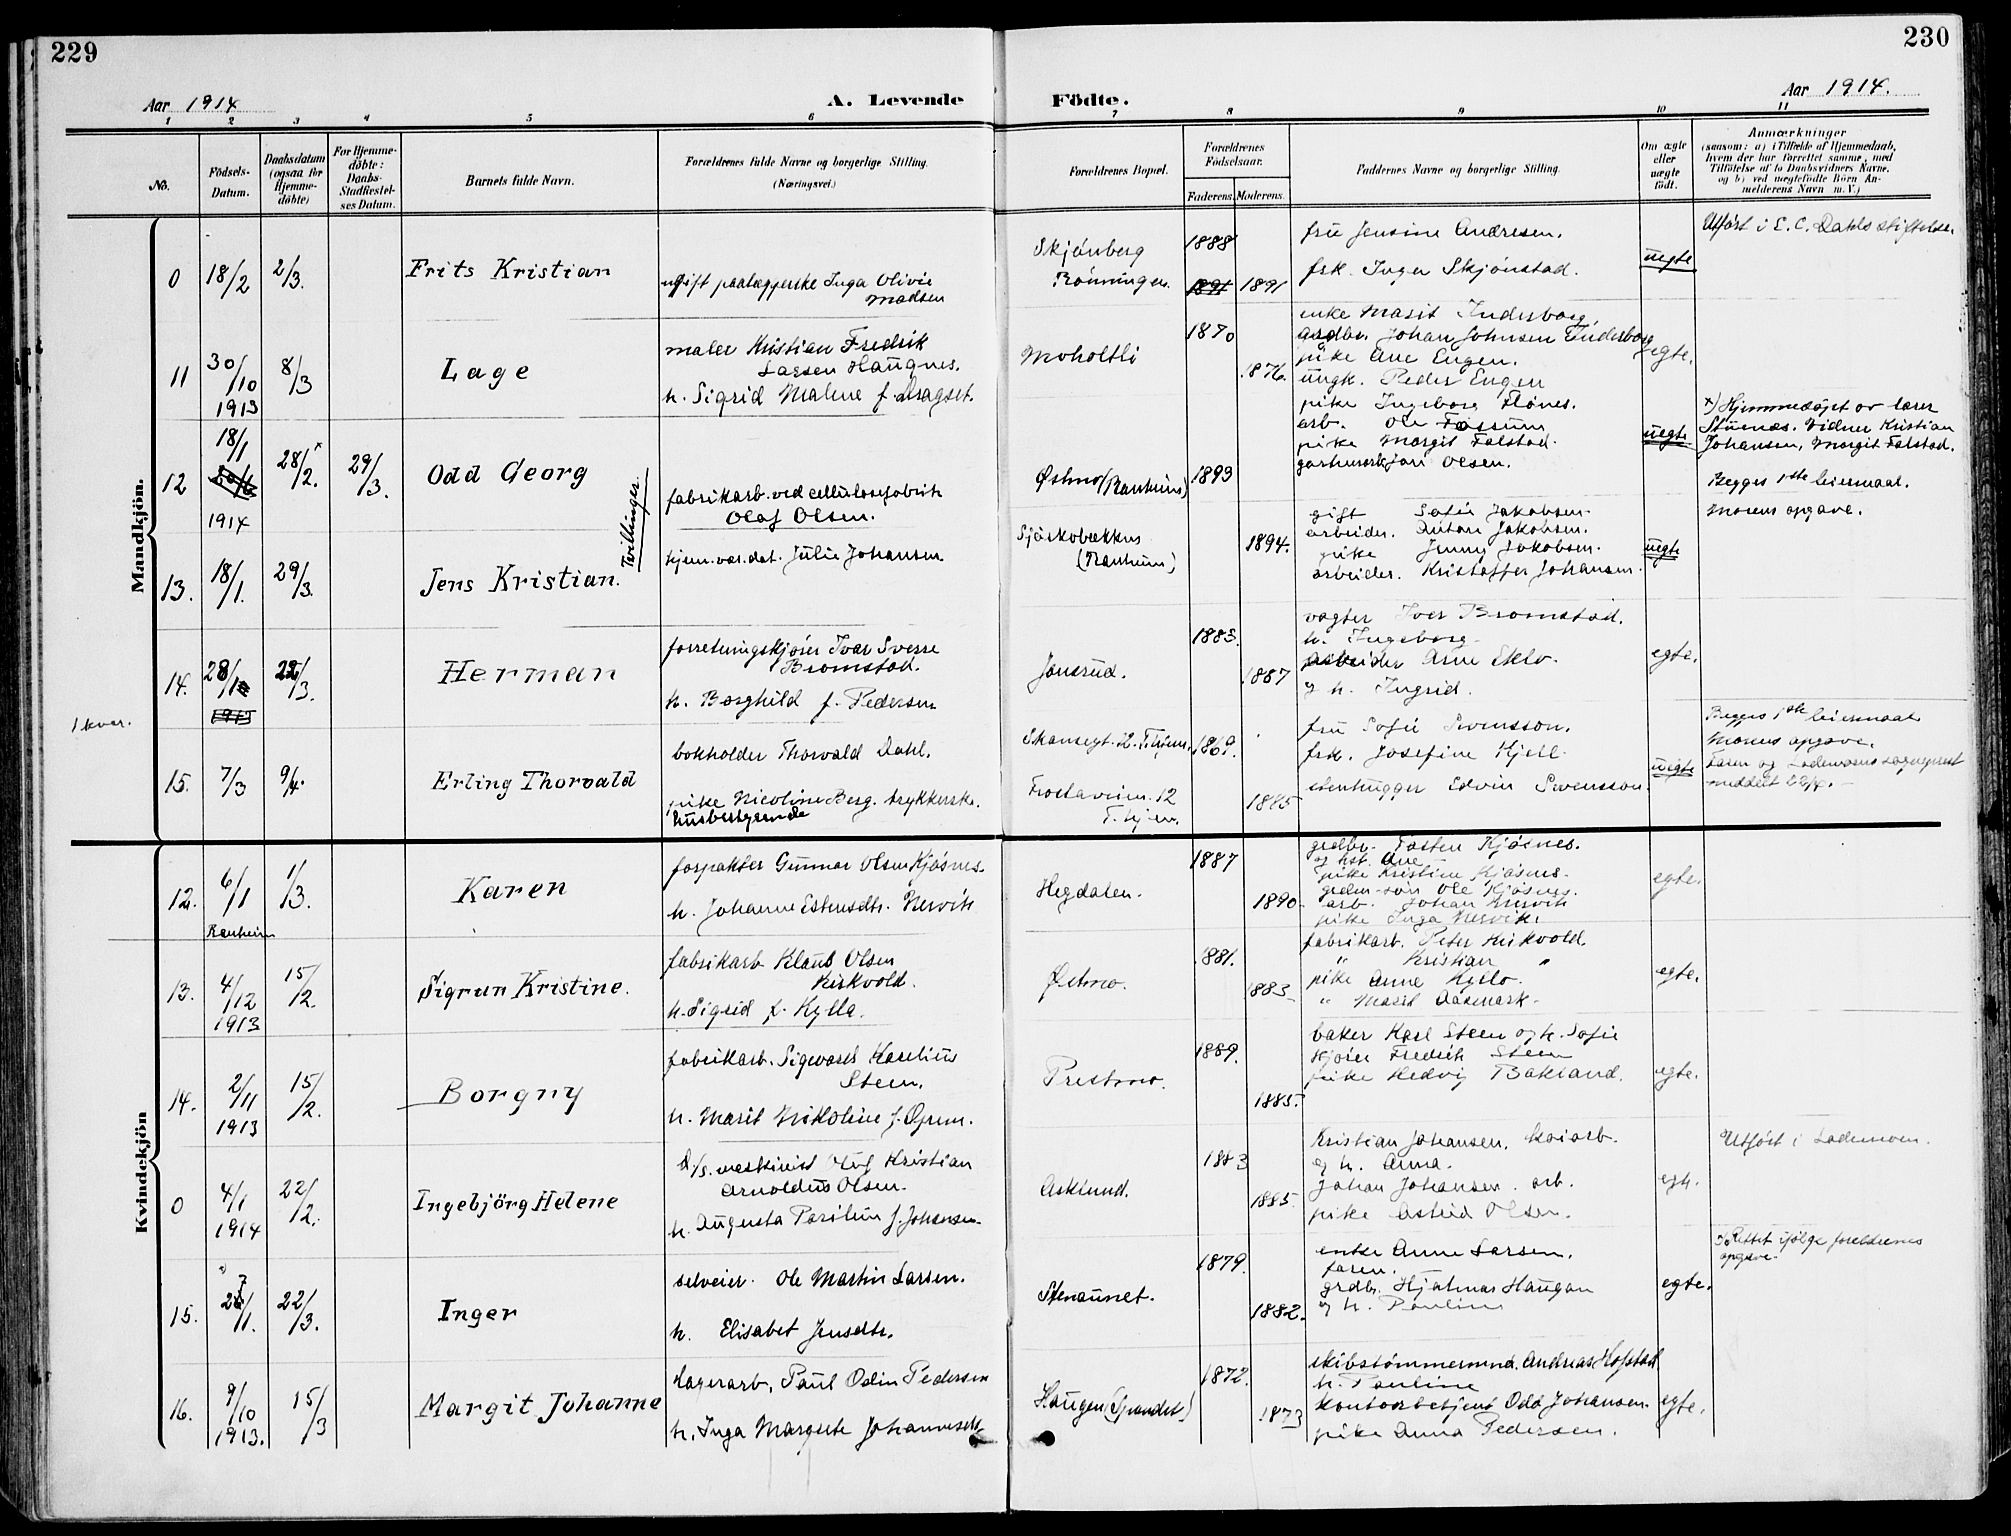 229
230
Aar 1914
A. Levende
Födte.
Aar 1914.
1 2 3 4 5 6 7 8 9 10 11
No.
Födsels-Datum.
Daabsdatum (ogsaa for Hjemme-döbte)
For Hjemme-döbte: Daabs-Stadfæstel-ses Datum.
Barnets fulde Navn.
Forældrenes fulde Navne og borgerlige Stilling.
(Næringsvei.)
Forældrenes Bopæl.
Forældrenes Födselsaar.
Faderens. Moderens.
Faddernes Navne og borgerlige Stilling.
Om ægte eller uægte födt.
Anmærkninger
(saasom: a) i Tilfælde af Hjemmedaab,
hvem der har forrettet samme, med
Tilföielse af to Daabsvidners Navne.
og b) ved uægtefödte Börn An-
melderens Navn m. V.)
Mandkjön.
0 18/2 2/3. Frits Kristian
ugift paalæggerske Inga Olivie
Madsen
Skjønberg
Rønningen.
1888
1891 1891
fru Jensine Andresen.
frk. Inga Skjønstad.
uegte
Utført i E. C. Dahls stiftelse.
11 30/10 1913 8/3 Lage
maler Kristian Fredrik
Larsen Haugnes.
h. Sigrid Malene f. Dragset.
Moholtli
1870
1876.
enke Marit Inderborg,
gardbr. Johan Johnsen Inderborg
pike Ane Engen.
ungk. Peder Engen
egte.
12 18/1 1914 28/2.× 29/3. Odd Georg
Tvillinger.
fabrikarb. ved cellulosefabrik
Olaf Olsen.
Østmo (Ranheim)
1893
pike Ingeborg Flønes.
arb. Ole Fossum
pike Margit Falstad.
Olsen.
uegte
×) Hjemmedøpt av lærer
Stuenæs. Vidner Kristian
Johansen, Margit Falstad.
Begges 1ste leiermaal.
Morens opgave.
13. 18/1. 29/3. Jens Kristian.
hjem.vær.dat. Julie Johansen
Sjøskobakken
(Ranheim)
1894.
gift Sofie Jakobsen
arbeider. Anton Jakobsen.
pike Jenny Jakobsen.
arbeider. Kristoffer Johansen.
uegte
14. 28/10 1913 22/3. Herman
forretningskjører Ivar Sverre
Bromstad.
h. Borghild f. Pedersen
Jonsrud.
1883.
1887
vogter Iver Bromstad.
h. Ingeborg.
arbeider Arne Eklo.
og h. Ingrid.
egte.
1 kvar.
15. 7/3 9/4. Erling Thorvald
bokholder Thorvald Dahl.
pike Nicoline Berg. trykkerske.
husbestyrende
Skansegt. 12. T.hjem.
Frostaveien. 12
T.hjem.
1869.
1885
fru Sofie Svensson.
frk. Josefine Kjell.
stenhugger Edvin Svensson.
uegte
Begges 1ste leiermaal.
Morens opgave.
Faren og Lademoens sogneprest
meddelt
Kvindekjön
12. 6/1 1/3. Karen
Ranheim
forpakter Gunnar Olsen Kjøsnes.
h. Johanne Estensdtr. Nervik
Hegdalen.
1887
1890
grdbr. Fosten Kjøsnes.
og hst. Ane
pike Kristine Kjøsnes.
grdm-søn Ole Kjøsnes.
arb. Johan Nervik
pike Inga Nervik.
egte.
13. 4/12 1913 15/2. Sigrun Kristine.
fabrikarb Klaus Olsen
Kirkvold.
h. Sigrid f. Hylla.
Østmo.
1881.
1883
fabrikarb. Peter Kirkvold.
" Kristian "
pike Anne Hyllo.
" Marit Aasmark.
egte.
14. 2/11 1913 15/2. Borgny
fabrikarb. Sigvart Karelius
Steen.
h. Marit Nikoline f. Øprem.
Prestmo.
1889.
1885.
baker Karl Steen og h. Sofie
kjører Fredrik Steen
pike Hedvig Bakland.
egte.
0 4/1 1914 22/2. Ingebjörg Helene
d/s. maskinist Oluf Kristian
Arnoldus Olsen.
h. Augusta Pasilia f. Johansen
Asklund.
1883
1885.
Kristian Johansen. kaiarb.
og h. Anna.
Johan Johansen. arb.
pike Astrid Olsen.
egte.
Utført i Lademoen.
15. 27/1. 22/3. Inger
selveier. Ole Martin Larsen.
h. Elisabet Jensdtr.
Stenaunet.
1879.
1882.
enke Anne Larsen.
faren.
grdbr. Hjalmar Haugan
og h. Pauline
egte.
×) Rettet ifølge forældrenes
opgave.
16. 9/10 1913. 15/3 Margit Johanne
lagerarb. Paul Odin Pedersen
h. Inga Margrete Johannesdt.
Haugen (Grandet)
1872.
1873
skibstømmermnd. Andreas Hofstad.
h. Pauline
kontorbetjent Odd Johansen.
pike Anna Pedersen.
egte.